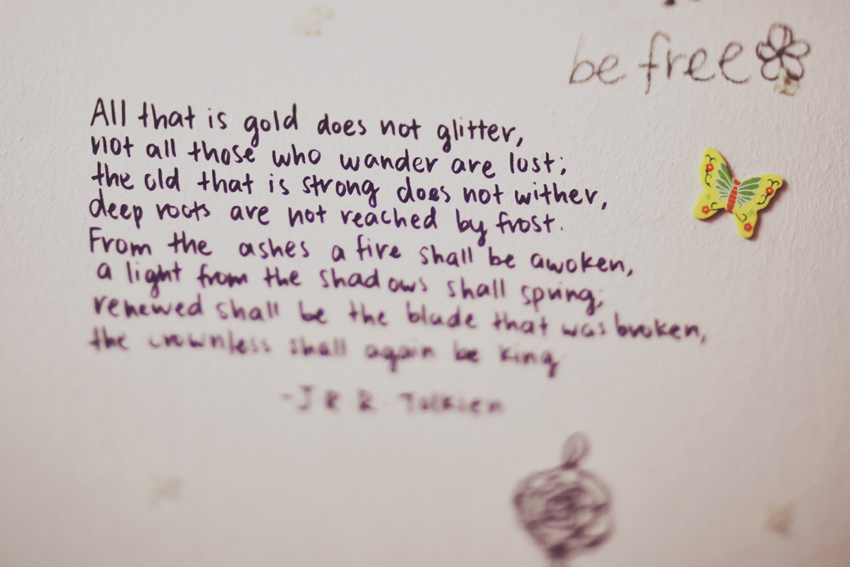 be free
All that is gold does not glitter,
not all those who wander are lost;
the old that is strong does not wither,
deep roots are not reached by frost.
From the ashes a fire shall be awoken,
a light from the shadows shall spring;
renewed shall be the blade that was broken,
the crownless shall again be king
-J R R Tolkien